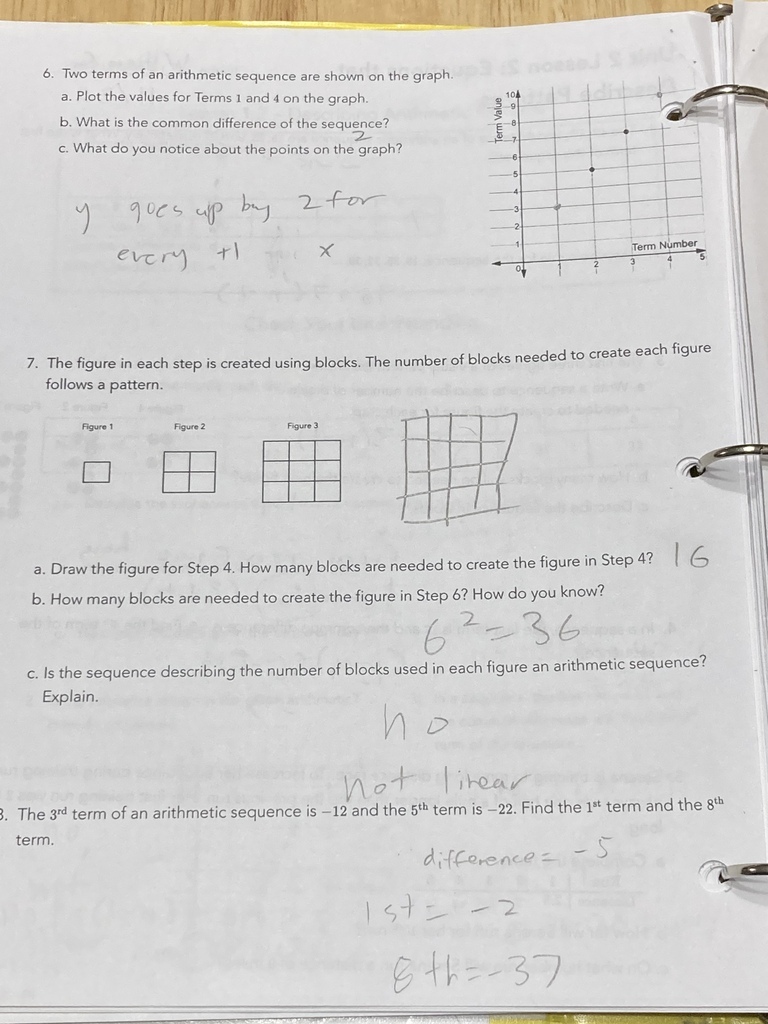 6. Two terms of an arithmetic sequence are shown on the graph.
a. Plot the values for Terms 1 and 4 on the graph.
b. What is the common difference of the sequence?
2
c. What do you notice about the points on the graph?
y goes up by 2 for
every +1 x
Term Value
10
9
8
7
6
5
4
3
2
1
0
1
2
3
4
5
Term Number
7. The figure in each step is created using blocks. The number of blocks needed to create each figure
follows a pattern.
Figure 1
Figure 2
Figure 3
a. Draw the figure for Step 4. How many blocks are needed to create the figure in Step 4? 16
b. How many blocks are needed to create the figure in Step 6? How do you know?
6² = 36
c. Is the sequence describing the number of blocks used in each figure an arithmetic sequence?
Explain.
no
not linear
8. The 3rd term of an arithmetic sequence is −12 and the 5th term is −22. Find the 1st term and the 8th
term.
difference = -5
1st = -2
8th = -37